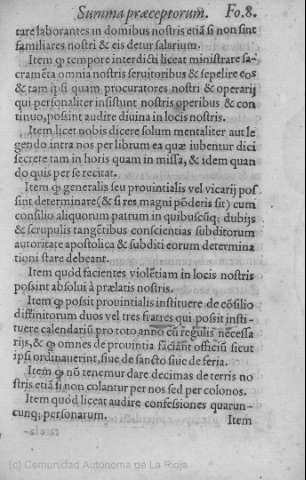 Summa præceptorum. Fo.8.
tare laborantes in domibus nostris etiã si non sint
familiares nostri & eis detur salarium.
Item ꝙ tempore interdicti liceat ministrare sa-
cramẽta omnia nostris seruitoribus & sepelire eos
& tam ipsi quam procuratores nostri & operarij
qui personaliter insistunt nostris operibus & con
tinuo, possint audire diuina in locis nostris.
Item licet nobis dicere solum mentaliter aut le
gendo intra nos per librum ea quæ iubentur dici
secrete tam in horis quam in missa, & idem quan
do quis per se recitat.
Item ꝙ generalis seu prouintialis vel vicarij pos
sint determinare (& si res magni põderis sit) cum
consilio aliquorum patrum in quibuscũq; dubijs
& scrupulis tangẽtibus conscientias subditorum
autoritate apostolica & subditi eorum determina
tioni stare debeant.
Item quòd facientes violẽtiam in locis nostris
possint absolui à prælatis nostris.
Item ꝙ possit prouintialis instituere de cõsilio
diffinitorum duos vel tres fratres qui possit insti-
tuere calendariũ pro toto anno cũ regulis necessa
rijs, & ꝙ omnes de prouintia faciãnt officiũ sicut
ipsi ordinauerint, siue de sancto siue de feria.
Item ꝙ nõ tenemur dare decimas de terris no
stris etiã si non colantur per nos sed per colonos.
Item quòd liceat audire confessiones quarun-
cunq; personarum. Item
(c) Comunidad Autónoma de La Rioja